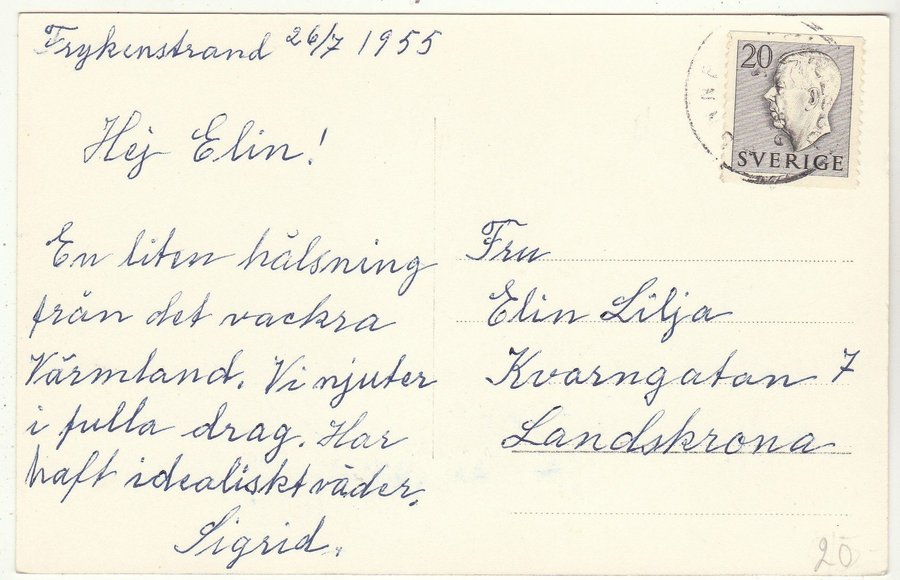 Frykenstrand 26/7 1955
Hej Elin!
En liten hälsning
från det vackra
Värmland. Vi njuter
i fulla drag. Har
haft idealiskt väder.
Sigrid.
20
SVERIGE
Fru
Elin Lilja
Kvarngatan 7
Landskrona
20